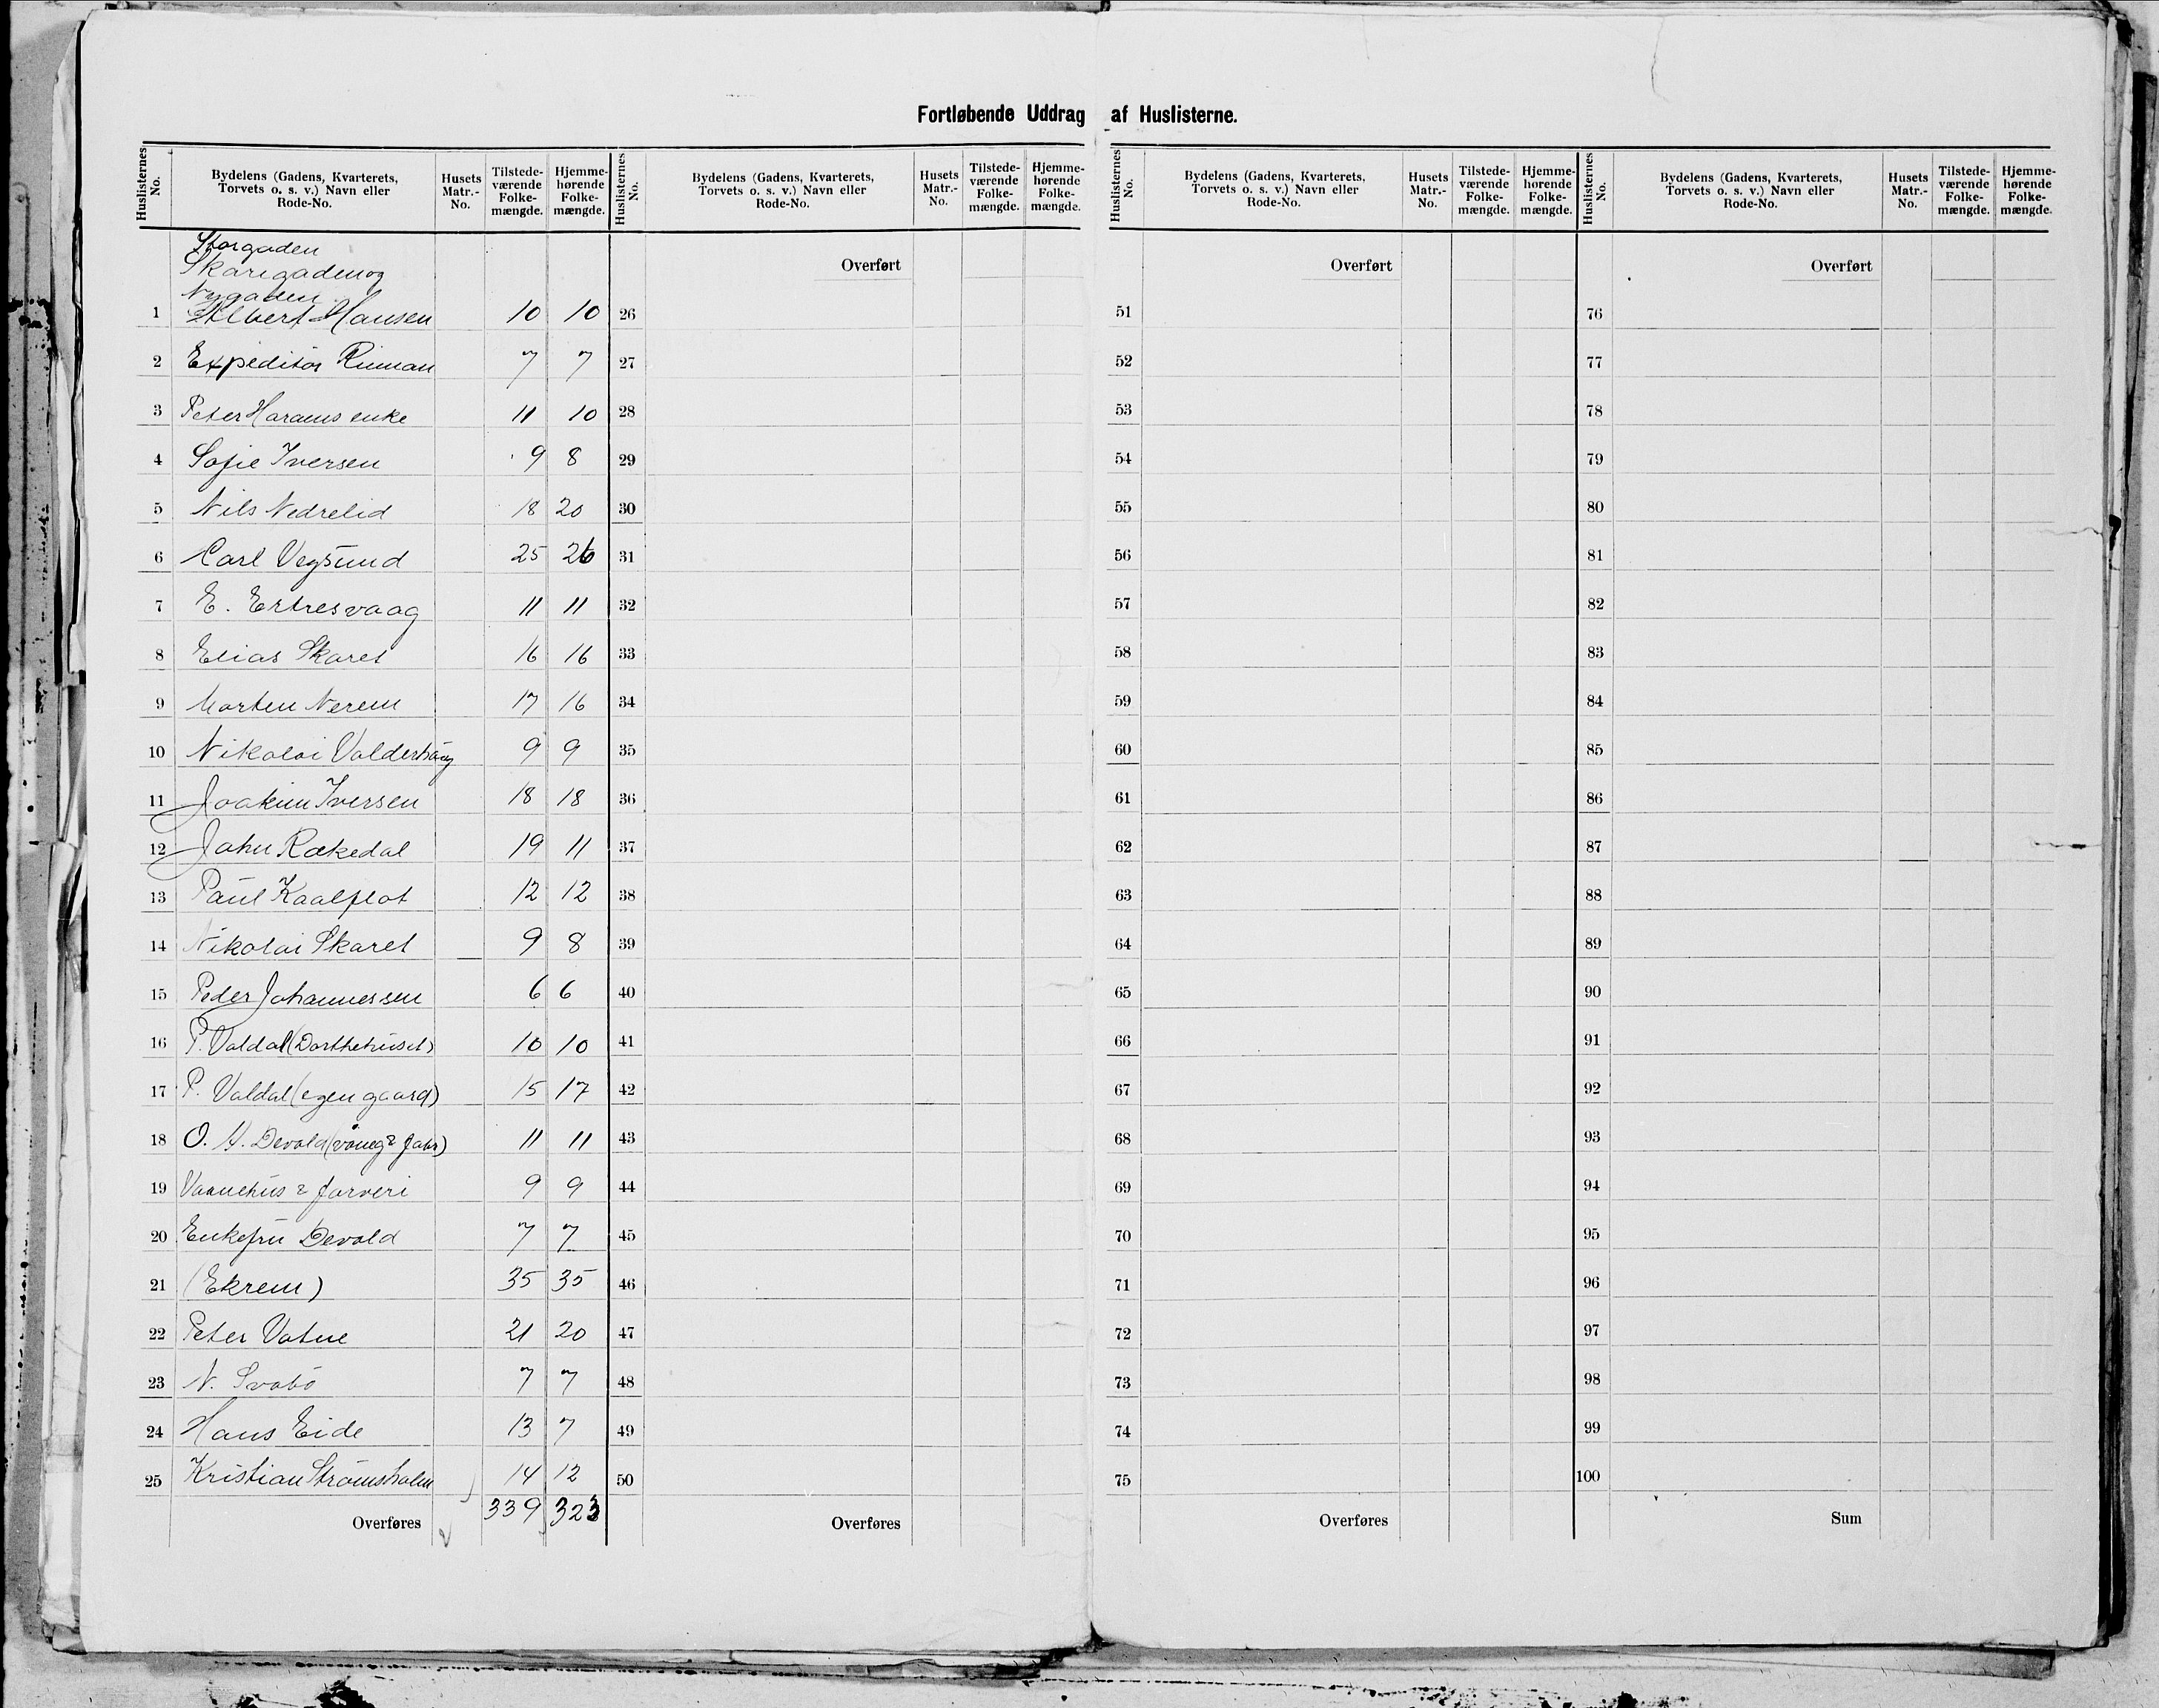 Fortløbende Uddrag af Huslisterne.
Huslisternes No. | Bydelens (Gadens, Kvarterets, Torvets o. s. v.) Navn eller Rode-No. | Husets Matr.-No. | Tilstedeværende Folkemængde. | Hjemmehørende Folkemængde.
Storgaden
Skarigaden og
Nygaden
1 Albert Hansen 10 10
2 Expeditör Riiman 7 7
3 Peter Harams enke 11 10
4 Sofie Iversen 9 8
5 Nils Nedrelid 18 20
6 Carl Vegsund 25 26
7 E. Ertresvaag 11 11
8 Elias Skaret 16 16
9 Morten Nerem 17 16
10 Nikolai Valderhaug 9 9
11 Joakim Iversen 18 18
12 John Rækedal 19 11
13 Paul Kaalflot 12 12
14 Nikolai Skaret 9 8
15 Peder Johannessen 6 6
16 P. Valdal (Dorthehuset) 10 10
17 P. Valdal (egen gaard) 15 17
18 O. A. Devold 11 11
19 Vaanehus & farveri 9 9
20 Enkefru Devold 7 7
21 (Ekrem) 35 35
22 Peter Vatne 21 20
23 N. Svabö 7 7
24 Hans Eide 13 7
25 Kristian Strömsholm 14 12
Overføres 339 323
Huslisternes No. | Bydelens (Gadens, Kvarterets, Torvets o. s. v.) Navn eller Rode-No. | Husets Matr.-No. | Tilstedeværende Folkemængde. | Hjemmehørende Folkemængde.
Overført
26
27
28
29
30
31
32
33
34
35
36
37
38
39
40
41
42
43
44
45
46
47
48
49
50
Overføres
Huslisternes No. | Bydelens (Gadens, Kvarterets, Torvets o. s. v.) Navn eller Rode-No. | Husets Matr.-No. | Tilstedeværende Folkemængde. | Hjemmehørende Folkemængde.
Overført
51
52
53
54
55
56
57
58
59
60
61
62
63
64
65
66
67
68
69
70
71
72
73
74
75
Overføres
Huslisternes No. | Bydelens (Gadens, Kvarterets, Torvets o. s. v.) Navn eller Rode-No. | Husets Matr.-No. | Tilstedeværende Folkemængde. | Hjemmehørende Folkemængde.
Overført
76
77
78
79
80
81
82
83
84
85
86
87
88
89
90
91
92
93
94
95
96
97
98
99
100
Sum